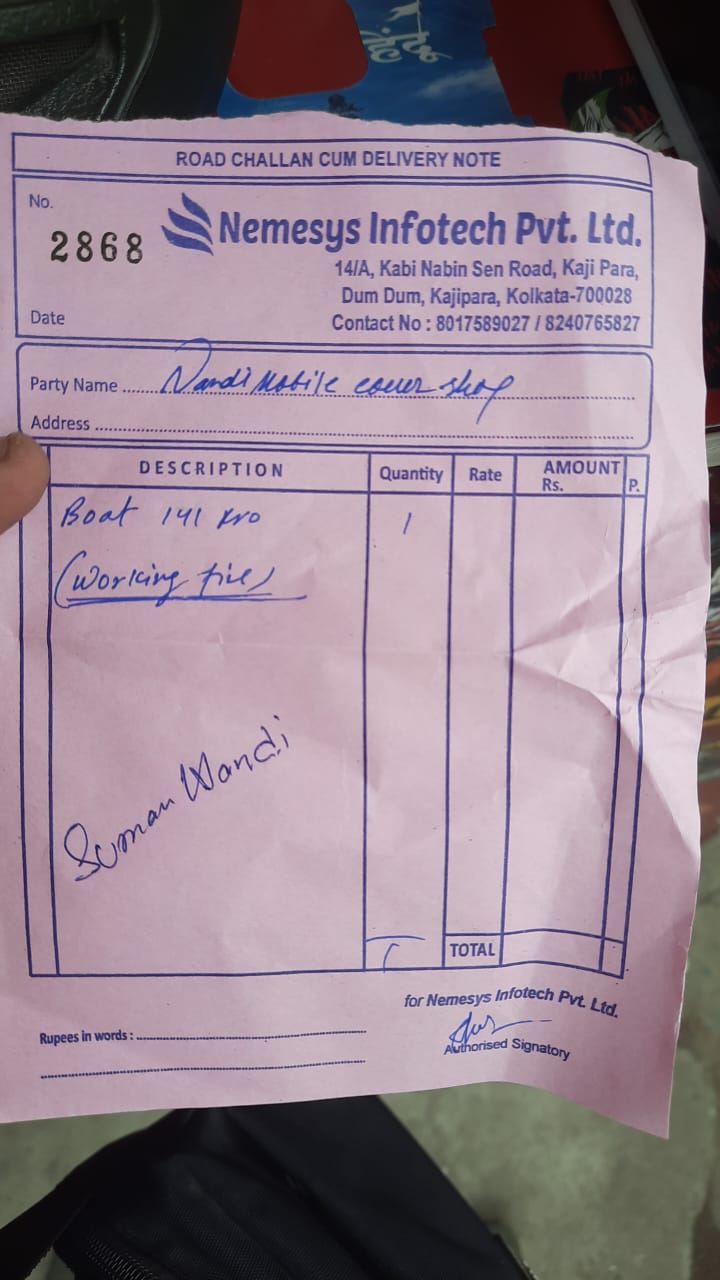 ROAD CHALLAN CUM DELIVERY NOTE
No.
2868
Nemesys Infotech Pvt. Ltd.
14/A, Kabi Nabin Sen Road, Kaji Para,
Dum Dum, Kajipara, Kolkata-700028
Date
Contact No : 8017589027 / 8240765827
Party Name Nandi Mobile cover shop
Address
DESCRIPTION Quantity Rate AMOUNT Rs. P.
Boat 141 pro 1
(Working fine)
Suman Nandi
1 TOTAL
for Nemesys Infotech Pvt. Ltd.
Rupees in words :
Authorised Signatory